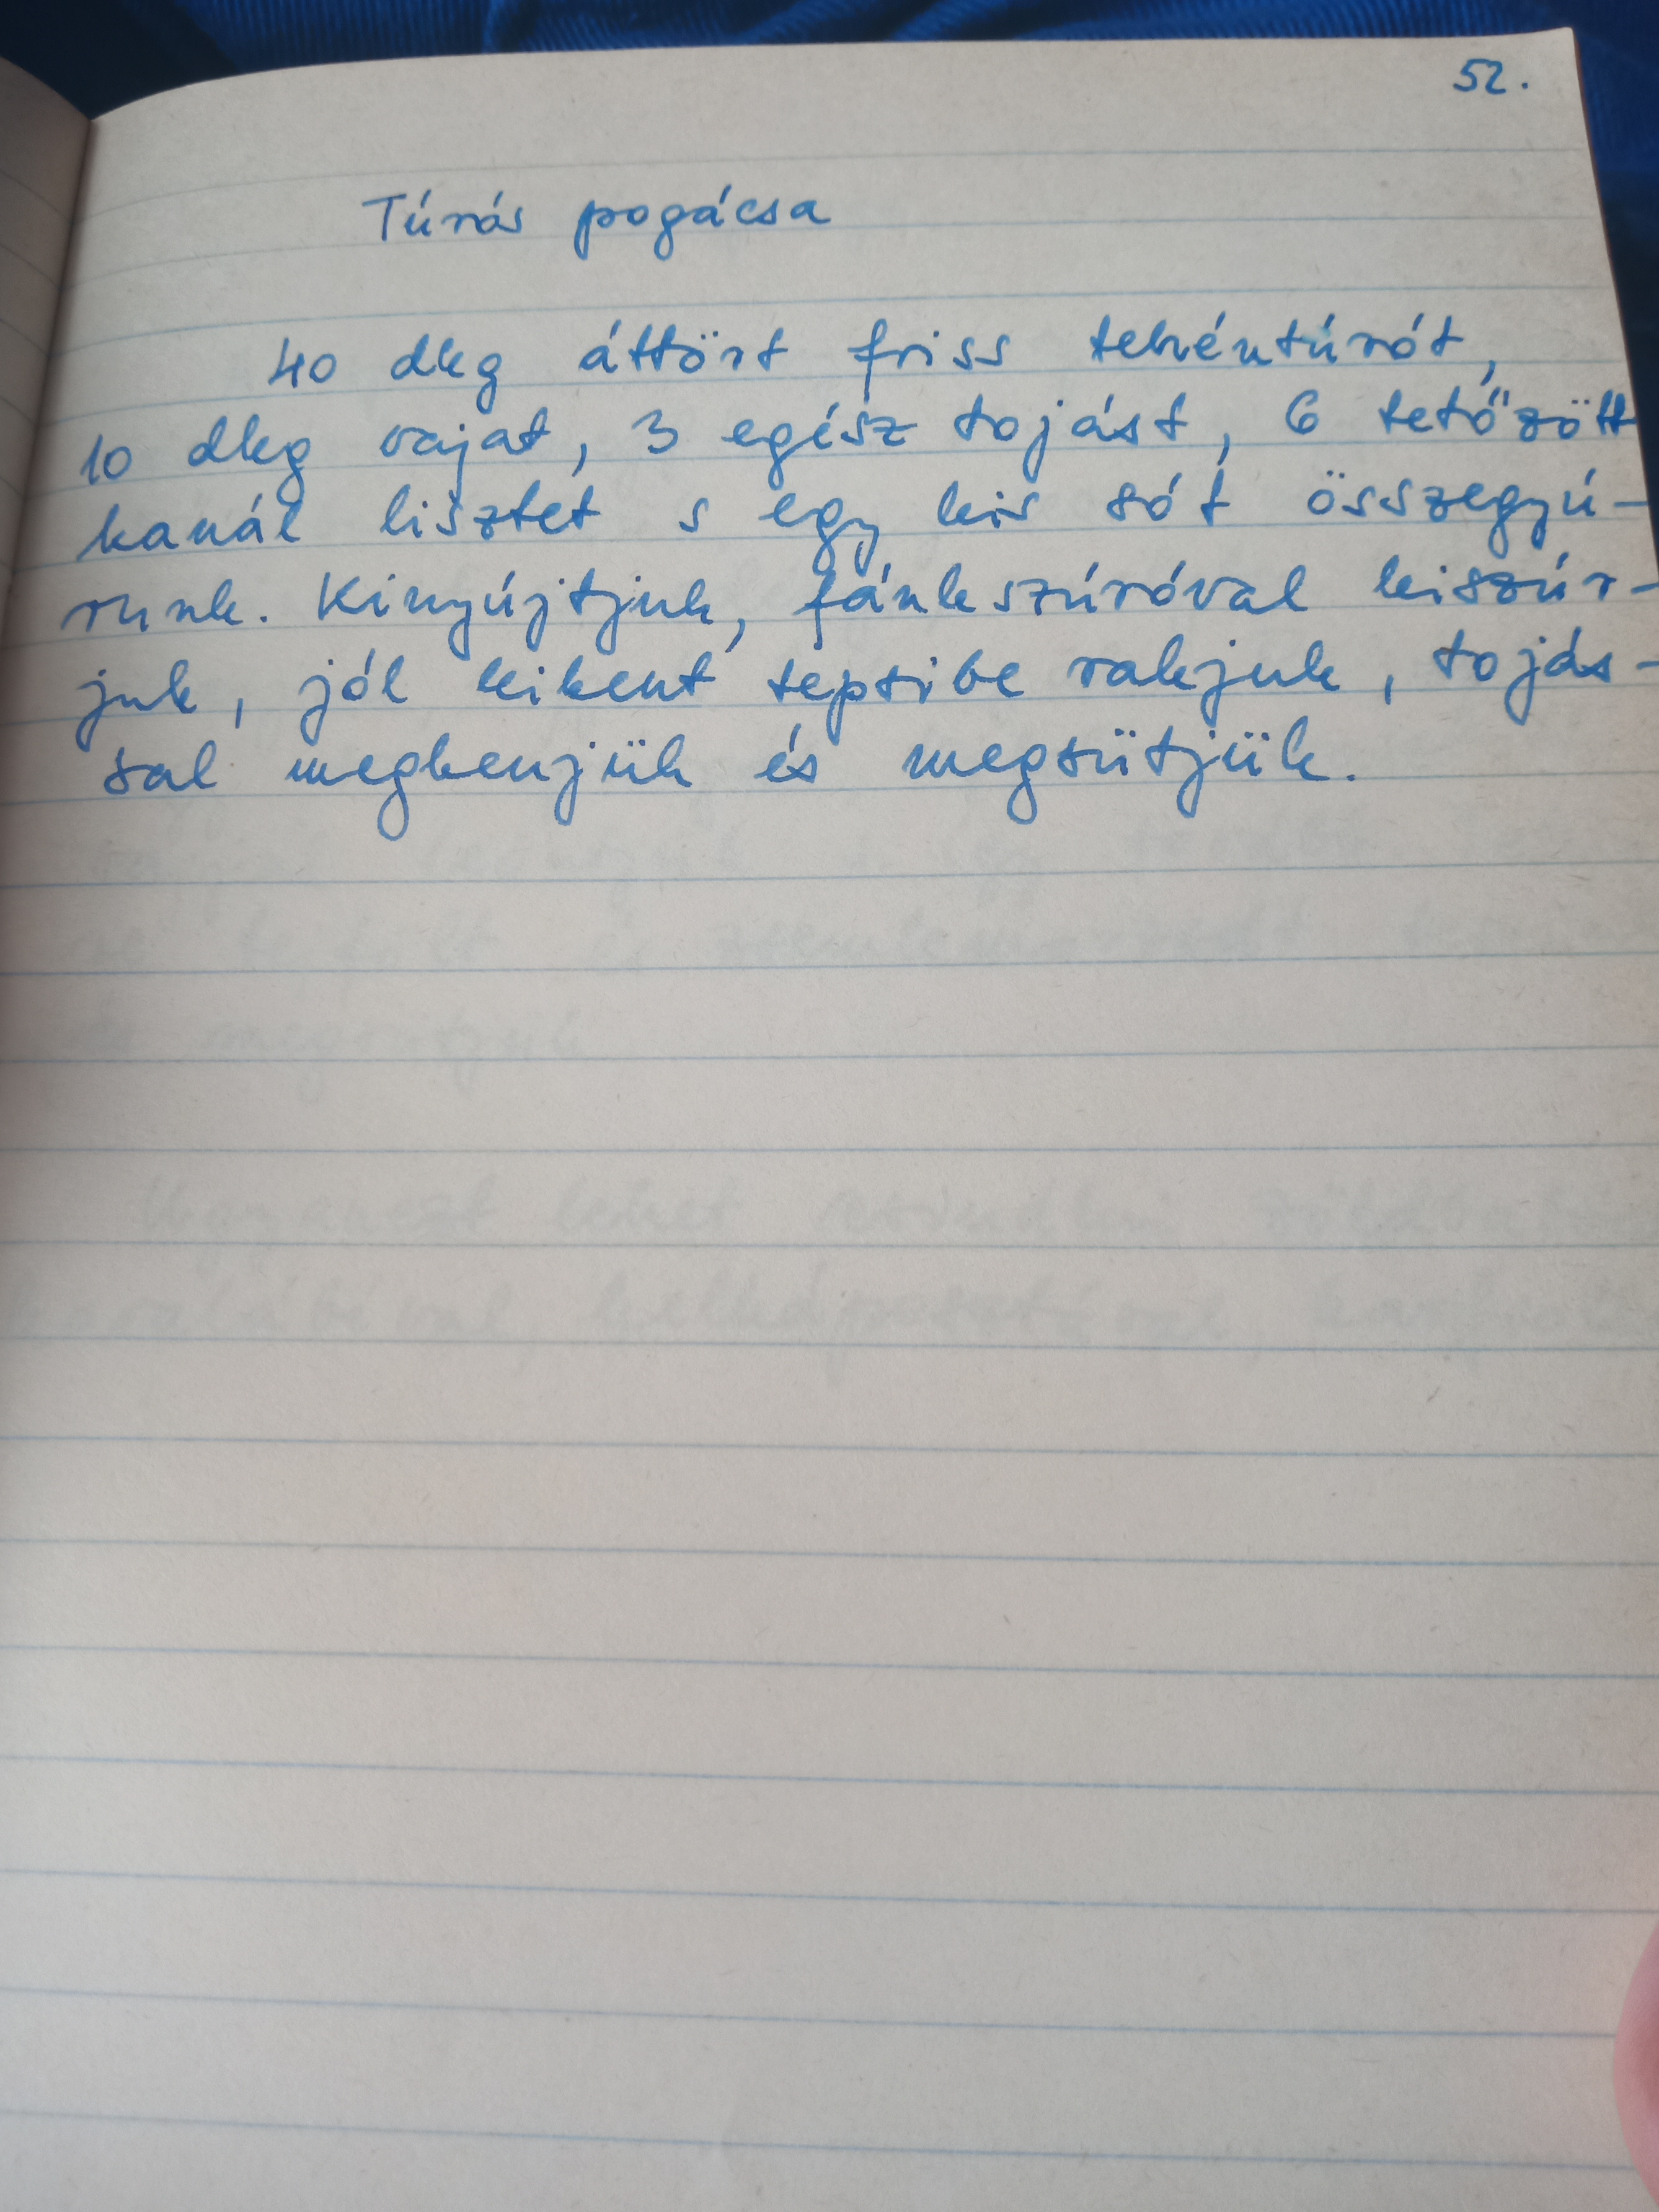 52.
Túrós pogácsa
40 dkg áttört friss tehéntúrót,
10 dkg vajat, 3 egész tojást, 6 tetőzött
kanál lisztet s egy kis sót összegyú-
runk. Kinyújtjuk, fánkszúróval kiszúr-
juk, jól kikent tepsibe rakjuk, tojás-
sal megkenjük és megsütjük.